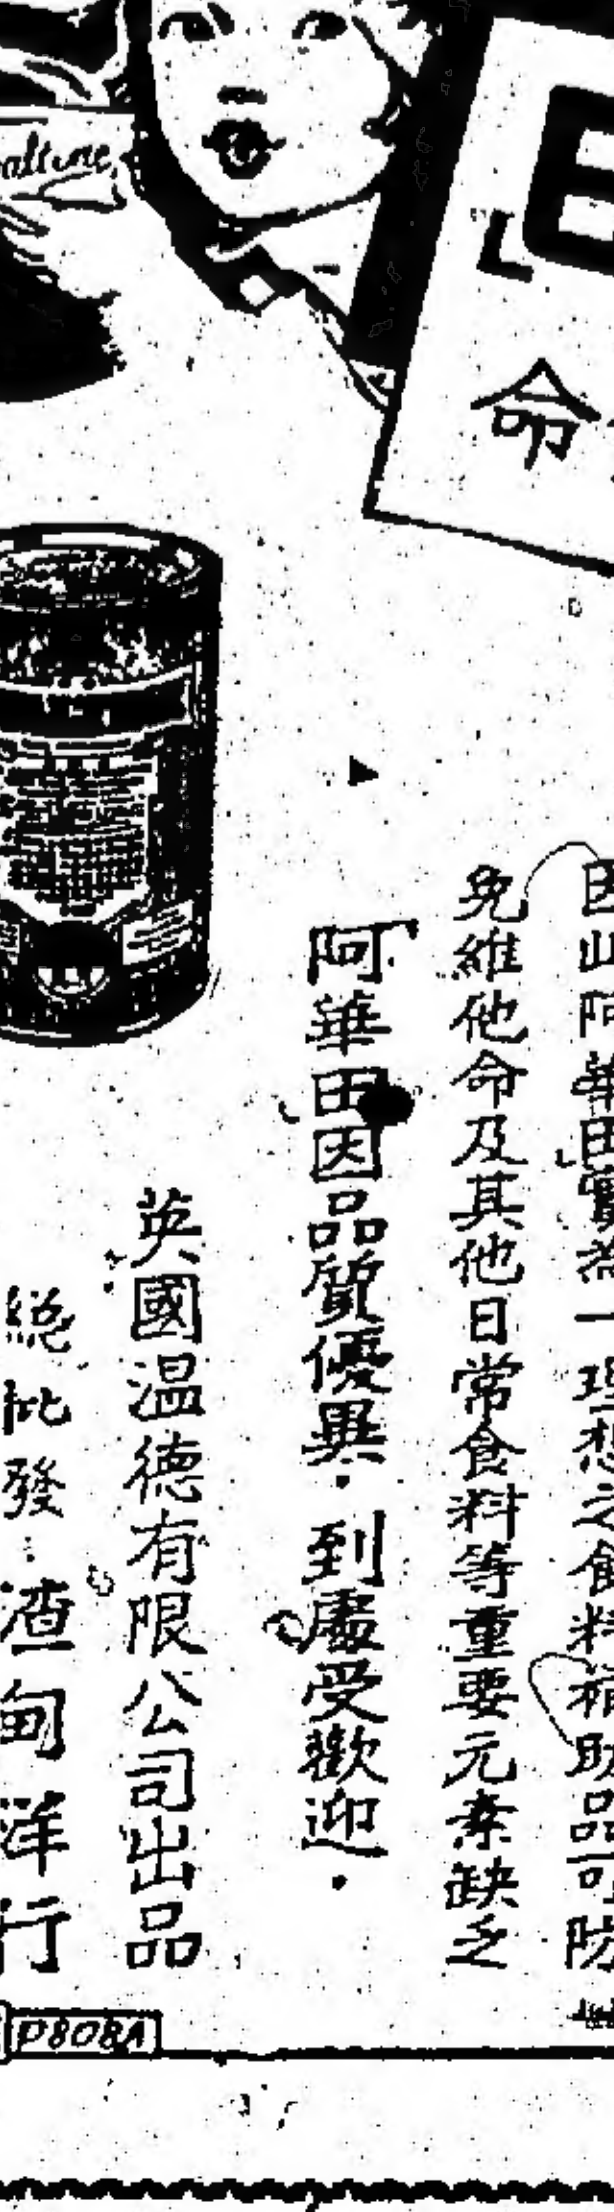 命
因此阿華田實為一理想之飲料補助品可防
免維他命及其他日常食料等重要元素缺乏
阿華田因品質優異．到處受歡迎．
英國温德有限公司出品
總批發：渣甸洋行
P808A